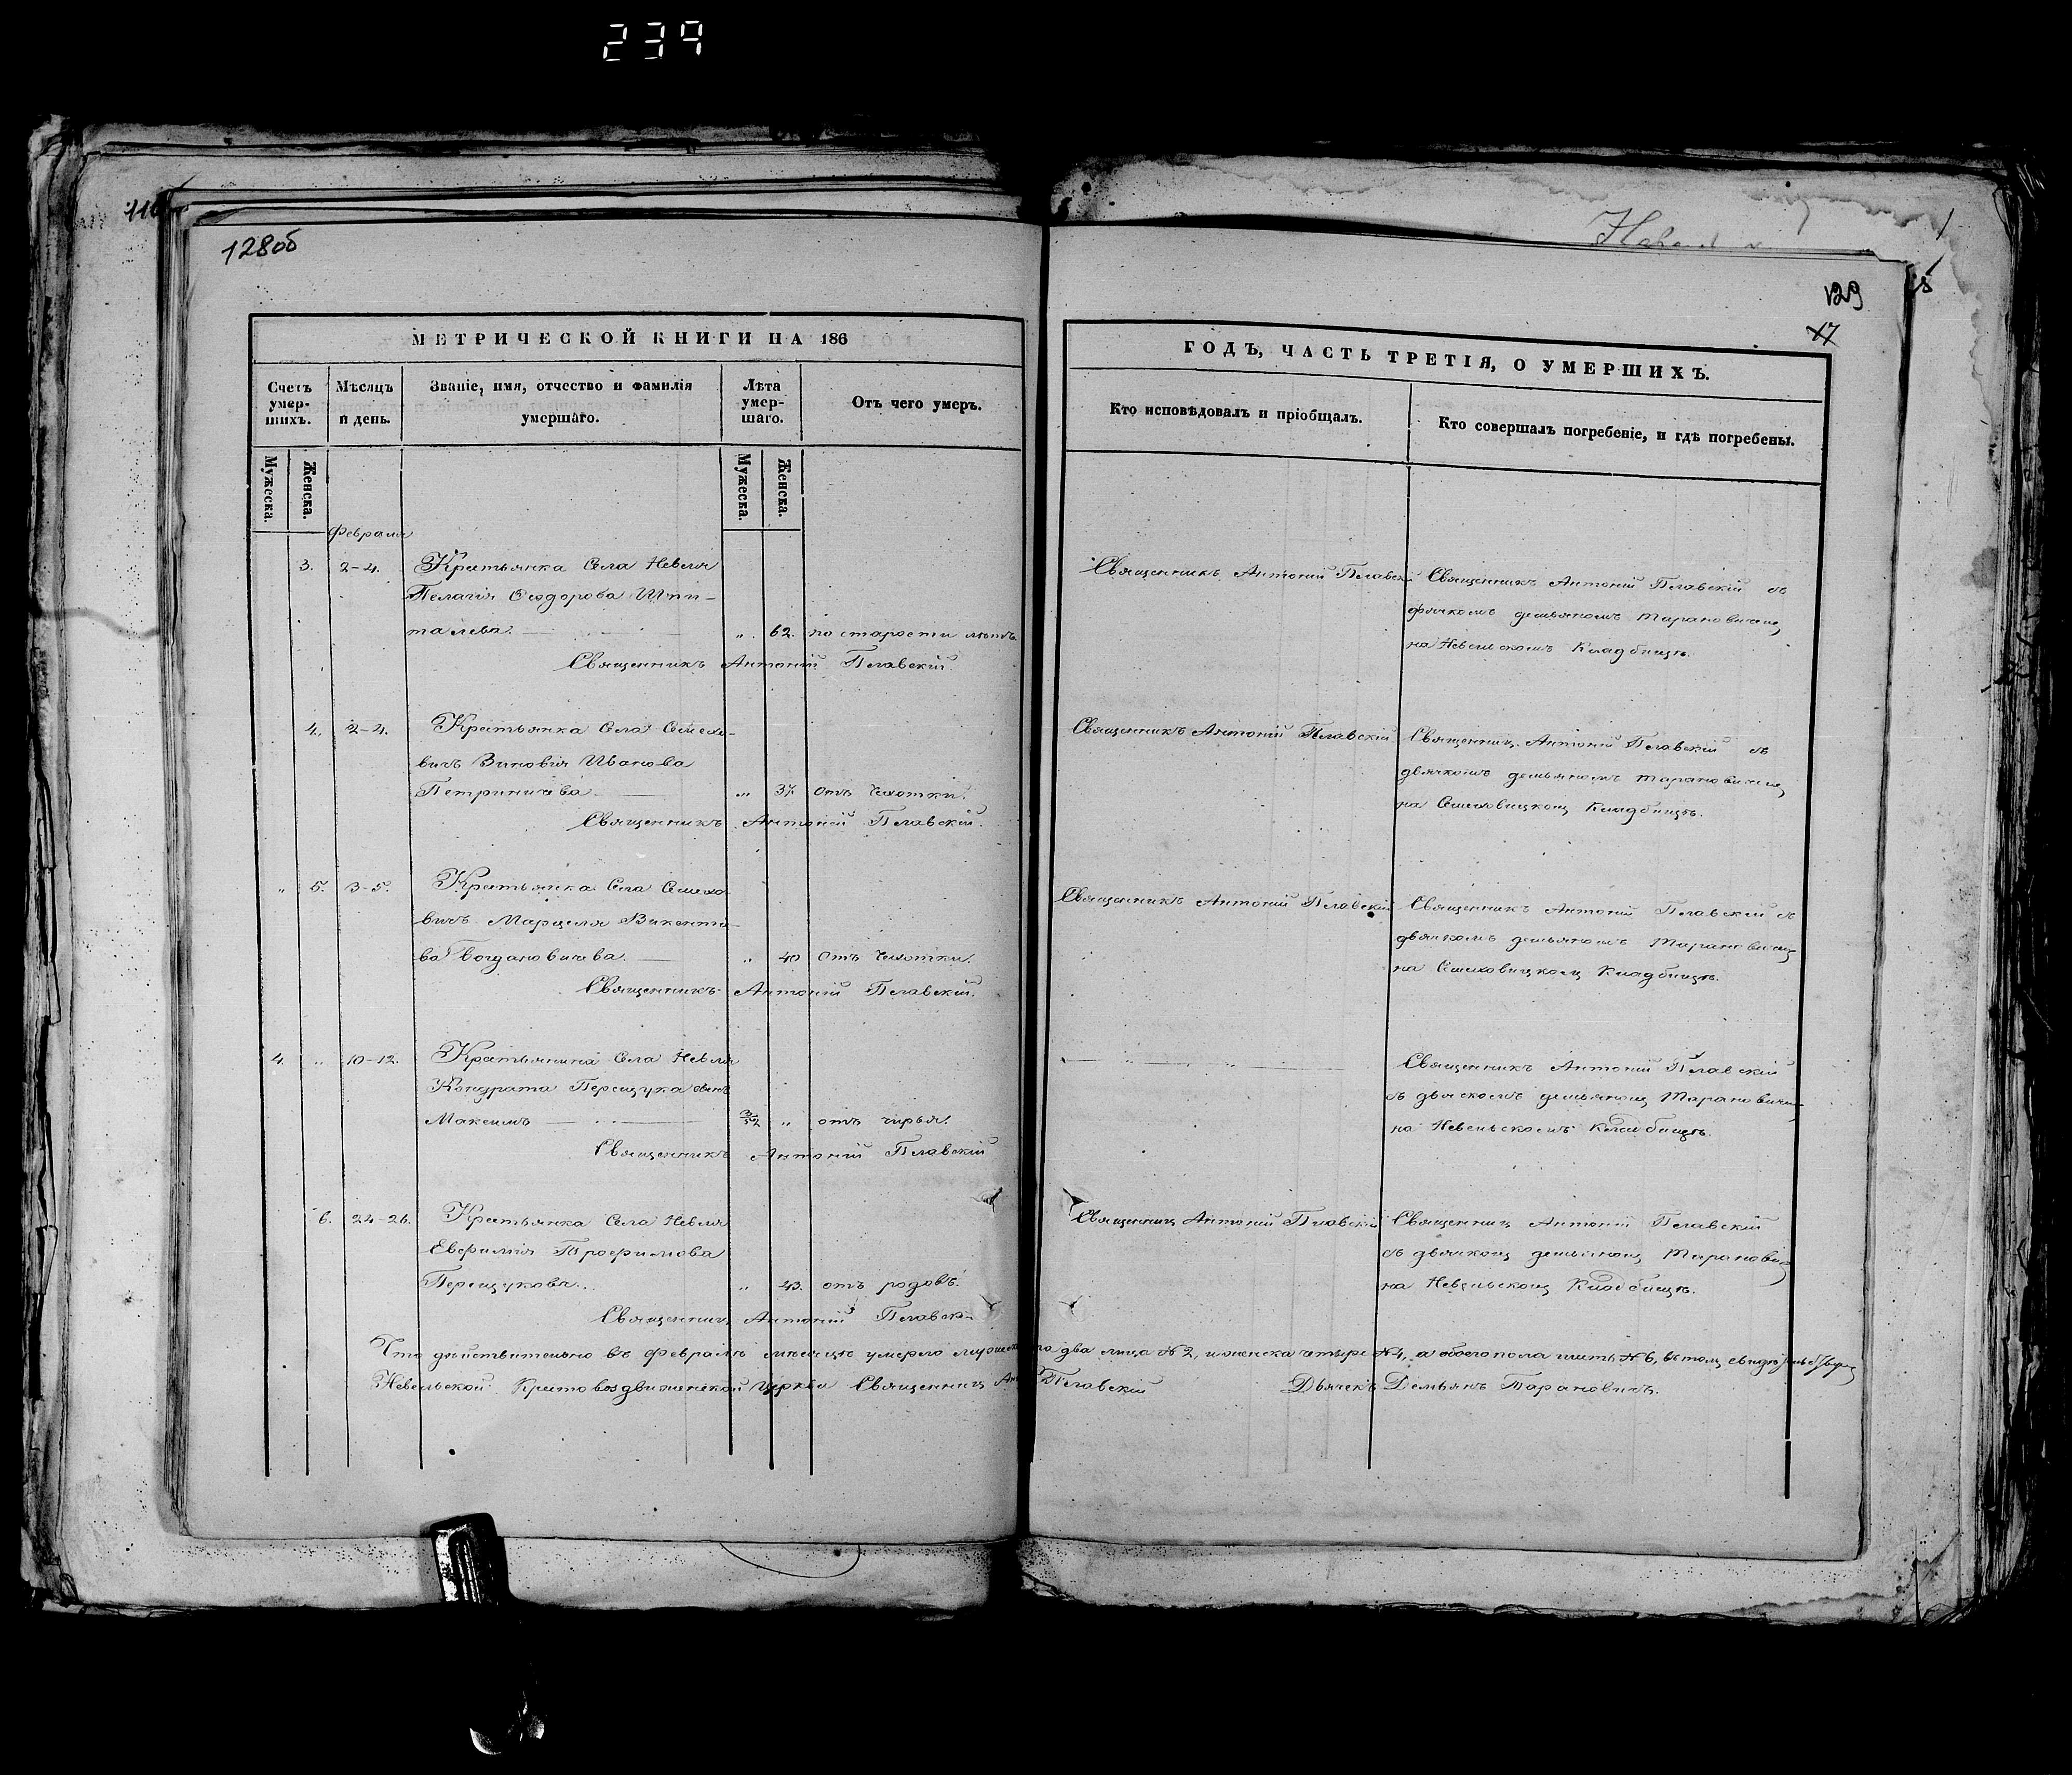 239
128об
129
17
МЕТРИЧЕСКОЙ КНИГИ НА 186
ГОДЪ, ЧАСТЬ ТРЕТІЯ, О УМЕРШИХЪ.
Счетъ умер-шихъ.
Мѣсяцъ и день.
Званіе, имя, отчество и фамилія умершаго.
Лѣта умер-шаго.
Отъ чего умеръ.
Кто исповѣдовалъ и пріобщалъ.
Кто совершалъ погребеніе, и гдѣ погребены.
Мужеска.
Женска.
Мужеска.
Женска.
Февраля
3. 2-4. Крестьянка Села Невеля
Пелагія Ѳеодорова Шпи-
талева. „ 62. по старости лѣтъ.
Священникъ Антоній Пелавскій.
Священникъ Антоній Пелавскій
Священникъ Антоній Пелавскій съ
дячкомъ демьяномъ Тарановичемъ
на Невельскомъ Кладбищѣ.
4. 2-4. Крестьянка Села Семехо-
вичъ Зиновія Иванова
Петриничева. „ 37. Отъ Чахотки.
Священникъ Антоній Пелавскій.
Священникъ Антоній Пелавскій
Священникъ Антоній Пелавскій съ
дьячкомъ демьяномъ Тарановичемъ
на Семеховицкомъ Кладбищѣ.
„ 5. 3-5. Крестьянка Села Семехо-
вичъ Марцеля Викентіе-
ва Богдановичева. „ 40 Отъ Чахотки.
Священникъ Антоній Пелавскій.
Священникъ Антоній Пелавскій
Священникъ Антоній Пелавскій съ
дьячкомъ демьяномъ Тарановичемъ
на Семеховицкомъ Кладбищѣ.
4. „ 10-12. Крестьянина Села Невеля
Кондрата Перецука сынъ
Максимъ 3/52 „ отъ чирья.
Священникъ Антоній Пелавскій
Священникъ Антоній Пелавскій
съ дьячкомъ демьяномъ Тарановичемъ
на Невельскомъ Кладбищѣ.
6. 24-26. Крестьянка Села Невеля
Евфимія Трофимова
Перецукова. „ 43. отъ родовъ.
Священникъ Антоній Пелавскій
Священникъ Антоній Пелавскій
Священникъ Антоній Пелавскій
съ дьячкомъ демьяномъ Тарановичемъ
на Невельскомъ Кладбищѣ.
Что дѣйствительно въ Февралѣ мѣсяцѣ умерло мужеска пола два лица № 2, и женска четыре № 4, а обоего пола шесть № 6, въ томъ свидѣтельствуемъ
Невельской Крестовоздвиженской Церкви Священникъ Антоній Пелавскій Дьячекъ Демьянъ Тарановичъ.